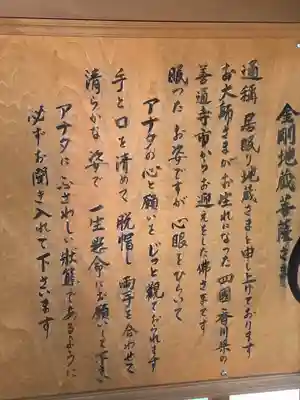 金剛地蔵菩薩さま
通称 居眠り地蔵さまと申し上げております
お大師さまがお生れになった四國香川県の
善通寺市からお迎えをした佛さまです
眠ったお姿ですが心眼をひらいて
アナタの心と願いをじっと観ておられます
手と口を清めて、脱帽し両手を合わせて
清らかな姿で一生懸命にお願いして下さい
アナタにふさわしい状態であるように
必ずお聞き入れて下さいます